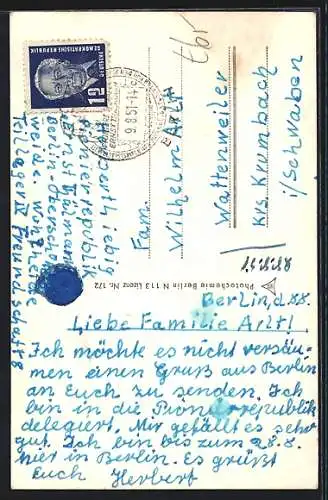 Berlin, d. 8.8.
Liebe Familie Arlt!
Ich möchte es nicht versäu-
men einen Gruß aus Berlin
an Euch zu senden. Ich
bin in die Pionierrepublik
delegiert. Mir gefällt es sehr
gut. Ich bin bis zum 28.8.
hier in Berlin. Es grüßt
Euch Herbert
Fam.
Wilhelm Arlt
Wattenweiler
Krs. Krumbach
i/Schwaben
Herbert Liebig
Pionierrepublik
Ernst Thälmann
Berlin-Oberschöne
weide, Wuhlheide
Teillager II Freundschaft
DEUTSCHE DEMOKRATISCHE REPUBLIK
12
BERLIN
9.8.51-14
Photochemie Berlin N 113 Lizenz Nr. 172